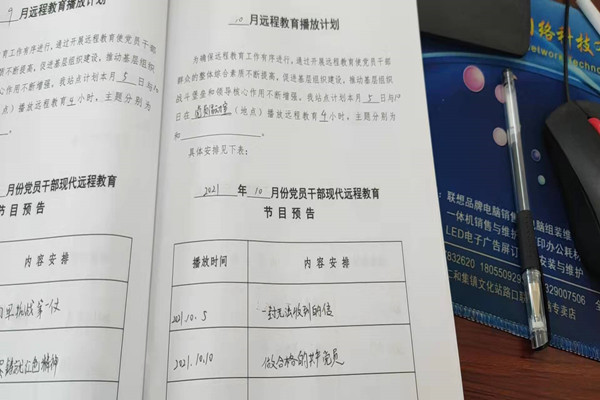 9 月远程教育播放计划
育工作有序进行,通过开展远程教育使党员干部
质不断提高,促进基层组织建设,推动基层组织
作用不断增强。我站点计划本月 5 日与
点)播放远程教育 4 小时,主题分别为
月份党员干部现代远程教育
节 目 预 告
内 容 安 排
10 月远程教育播放计划
为确保远程教育工作有序进行,通过开展远程教育使党员干部
群众的整体综合素质不断提高,促进基层组织建设,推动基层组织
战斗堡垒和领导核心作用不断增强。我站点计划本月 5 日与10
日在 (地点)播放远程教育 4 小时,主题分别为
和 。
具体安排见下表:
2021 年 10 月份党员干部现代远程教育
节 目 预 告
播放时间 内 容 安 排
2021.10.5 一封无法收到的信
2021.10.10 做合格的共产党员
网络科技
Network Technology
联想品牌电脑销售 电脑组装维
一体机销售与维护 打印办公耗材
LED电子广告屏订 安装与维护
832620 1805509
329007506
仁和集镇文化站路口 专卖店